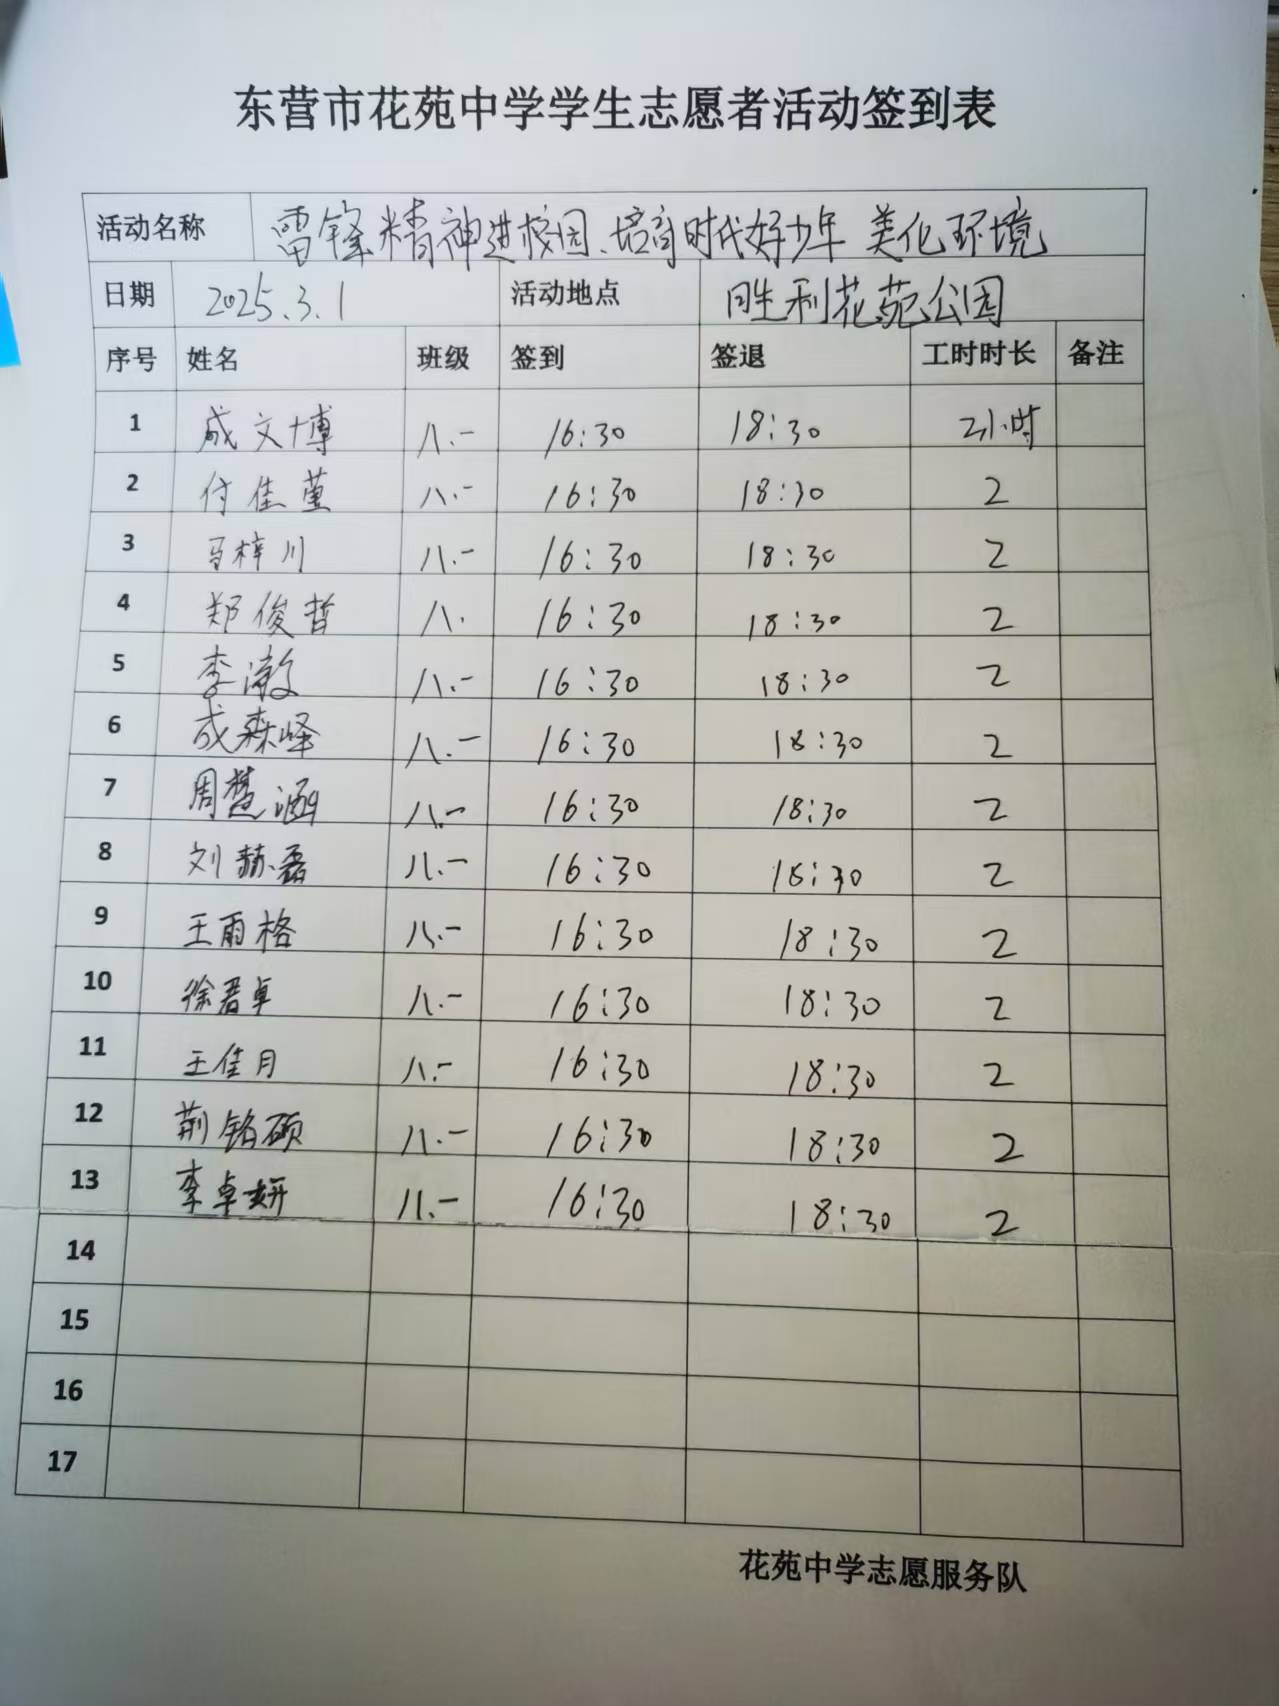 东营市花苑中学学生志愿者活动签到表
活动名称 雷锋精神进校园、培育时代好少年 美化环境
日期 2025.3.1 活动地点 胜利花苑公园
序号 姓名 班级 签到 签退 工时时长 备注
1 成文博 八.一 16:30 18:30 2小时
2 付佳萱 八.一 16:30 18:30 2
3 马梓川 八.一 16:30 18:30 2
4 郑俊哲 八. 16:30 18:30 2
5 李潋 八.一 16:30 18:30 2
6 成森峄 八.一 16:30 18:30 2
7 周慧涵 八.一 16:30 18:30 2
8 刘赫磊 八.一 16:30 18:30 2
9 王雨格 八.一 16:30 18:30 2
10 徐君卓 八.一 16:30 18:30 2
11 王佳月 八.一 16:30 18:30 2
12 荆铭硕 八.一 16:30 18:30 2
13 李卓妍 八.一 16:30 18:30 2
14
15
16
17
花苑中学志愿服务队